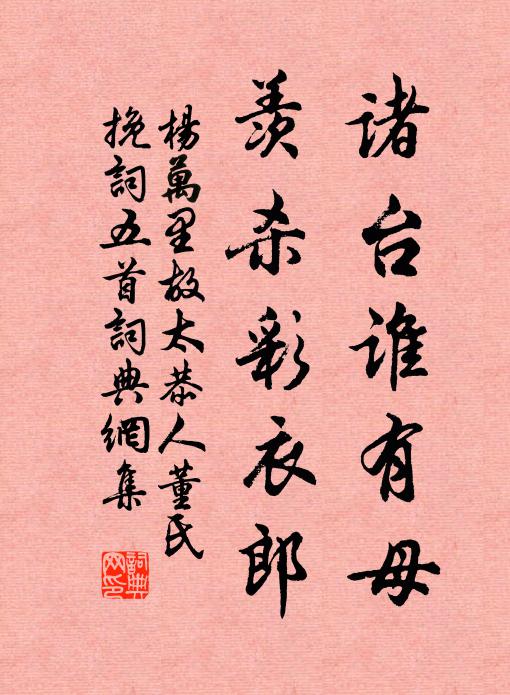 諸台誰有母
羨杀彩衣郎
楊萬里故太恭人董氏
挽詞五首詞典網集
詞典
网印